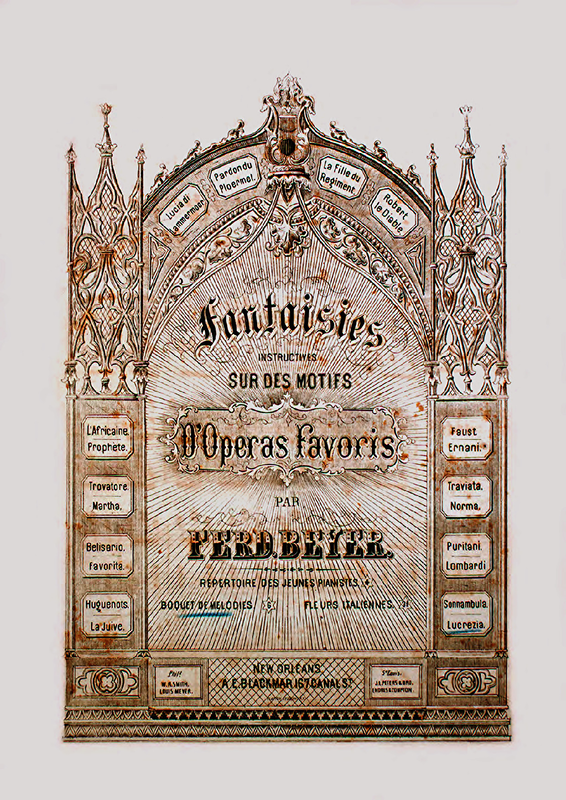 Lucia di
Lammermoor.
Pardon du
Ploermel.
La Fille du
Regiment.
Robert
le Diable.
Fantaisies
INSTRUCTIVES
SUR DES MOTIFS
D'Operas Favoris
PAR
FERD. BEYER.
REPERTOIRE DES JEUNES PIANISTES.
BOQUET DE MELODIES
FLEURS ITALIENNES.
L'Africaine.
Prophète.
Trovatore.
Martha.
Belisario.
Favorite.
Huguenots.
La Juive.
Faust.
Ernani.
Traviata.
Norma.
Puritani.
Lombardi
Sonnambula.
Lucrezia.
NEW ORLEANS
A. E. BLACKMAR 167 CANAL ST.
W. R. SMITH.
LOUIS MEYER.
St Louis.
J. L. PETERS & BRO.